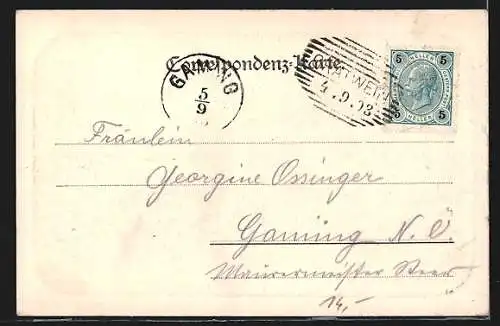 Correspondenz-Karte.
GAMING
5/9
4.9.03
5 5
HELLER HELLER
5 5
Fräulein
Georgine Ossinger
Gaming N. Ö.
Maurermeister
14,-